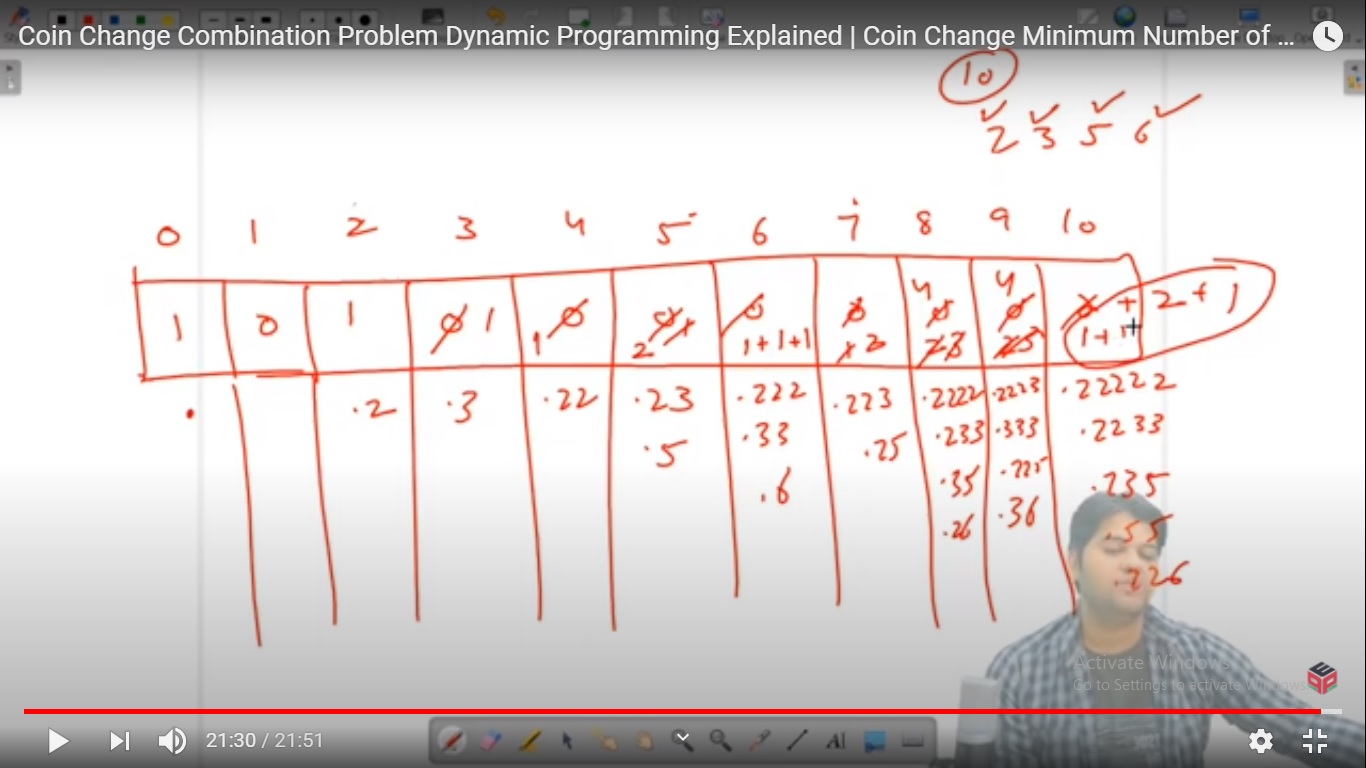 Coin Change Combination Problem Dynamic Programming Explained | Coin Change Minimum Number of ...
10
2 3 5 6
0 1 2 3 4 5 6 7 8 9 10
4 4 + 2 + 1
1 0 1 0 1 1 0 0 0
2 1+1+1 2 1+1
.2 .3 .22 .23 .222 .223 .2222 .2223 .22222
.5 .33 .25 .233 .333 .2233
.6 .35 .225 .235
.26 .36 .55
.226
Activate Windows
Go to Settings to activate Windows.
21:30 / 21:51
AI